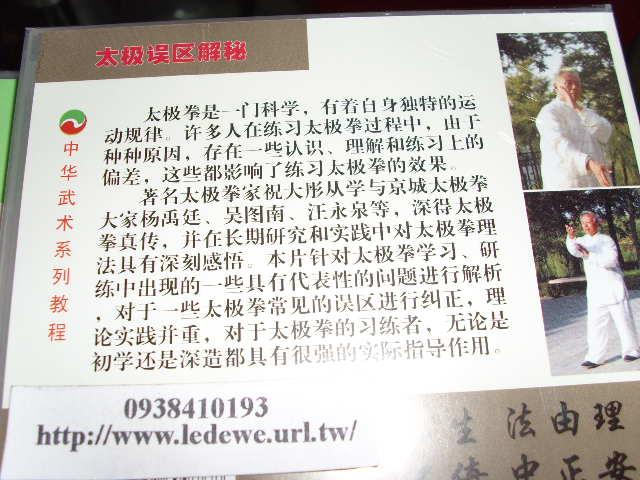 太极误区解秘
太极拳是一门科学，有着自身独特的运
动规律。许多人在练习太极拳过程中，由于
种种原因，存在一些认识、理解和练习上的
偏差，这些都影响了练习太极拳的效果。
著名太极拳家祝大彤从学与京城太极拳
大家杨禹廷、吴图南、汪永泉等，深得太极
拳真传，并在长期研究和实践中对太极拳理
法具有深刻感悟。本片针对太极拳学习、研
练中出现的一些具有代表性的问题进行解析
，对于一些太极拳常见的误区进行纠正，理
论实践并重，对于太极拳的习练者，无论是
初学还是深造都具有很强的实际指导作用。
中华武术系列教程
0938410193
http://www.ledewe.url.tw/
生 法由理
中正安